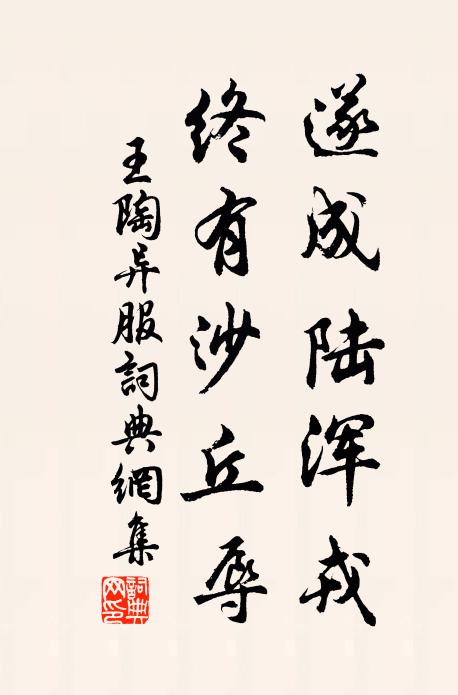 遂成陆浑戎
终有沙丘辱
王陶异服詞典網集
詞典网印